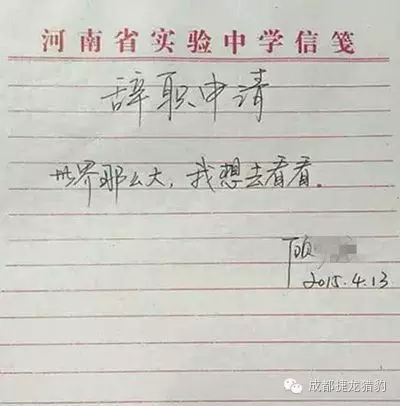 河南省实验中学信笺
辞职申请
世界那么大，我想去看看。
顾
2015.4.13
成都捷龙猎豹